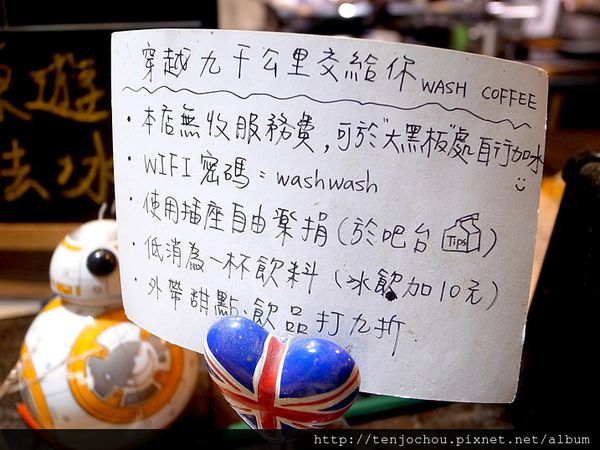 穿越九千公里交給你 WASH COFFEE
・本店無收服務費,可於"大黑板"處自行加水
・WIFI 密碼:washwash
・使用插座自由樂捐(於吧台 Tips)
・低消為一杯飲料(冰飲加10元)
・外帶甜點、飲品打九折
遊
去冰
http://tenjochou.pixnet.net/album